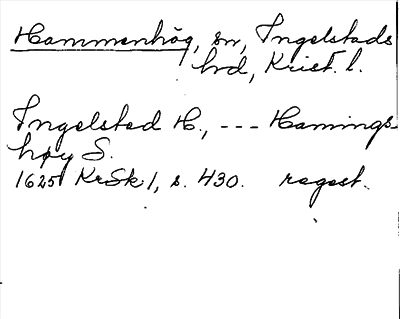 Hammenhög, sn, Ingelstads
hrd, Krist. l.
Ingelsted H., --- Hamings-
høy S.
1625 KrSk 1, s. 430. regest.